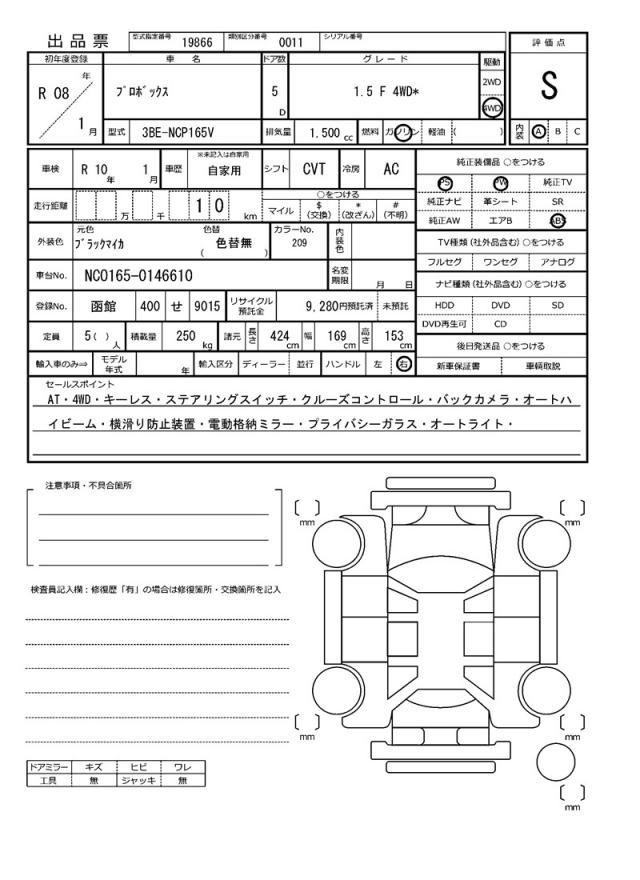 出品票 型式指定番号 19866 類別区分番号 0011 シリアル番号
評価点
S
内装 A B C
初年度登録 車名 ドア数 グレード 駆動
R 08 年 1 月
ﾌﾟﾛﾎﾞｯｸｽ 5 D 1.5 F 4WD* 2WD 4WD
型式 3BE-NCP165V 排気量 1.500 cc 燃料 ガソリン 軽油 ( )
車検 R 10 年 1 月 車歴 ※未記入は自家用 自家用 シフト CVT 冷房 AC
走行距離 万 千 1 0 km ○をつける
マイル $(交換) *(改ざん) #(不明)
外装色 元色 ﾌﾞﾗｯｸﾏｲｶ 色替 ( 色替無 ) カラーNo. 209 内装色
車台No. NC0165-0146610 名変期限 月 日
登録No. 函館 400 せ 9015 リサイクル預託金 9,280円預託済 未預託
定員 5( ) 人 積載量 250 kg 諸元 長さ 424 cm 幅 169 cm 高さ 153 cm
輸入車のみ⇒ モデル年式 年 輸入区分 ディーラー 並行 ハンドル 左 右
純正装備品 ○をつける
PS PW 純正TV
純正ナビ 革シート SR
純正AW エアB ABS
TV種類 (社外品含む) ○をつける
フルセグ ワンセグ アナログ
ナビ種類 (社外品含む) ○をつける
HDD DVD SD
DVD再生可 CD
後日発送品 ○をつける
新車保証書 車輌取説
セールスポイント
AT・4WD・キーレス・ステアリングスイッチ・クルーズコントロール・バックカメラ・オートハ
イビーム・横滑り防止装置・電動格納ミラー・プライバシーガラス・オートライト・
注意事項・不具合箇所
検査員記入欄：修復歴「有」の場合は修復箇所・交換箇所を記入
ドアミラー キズ ヒビ ワレ
工具 無 ジャッキ 無
mm
mm
mm
mm
mm